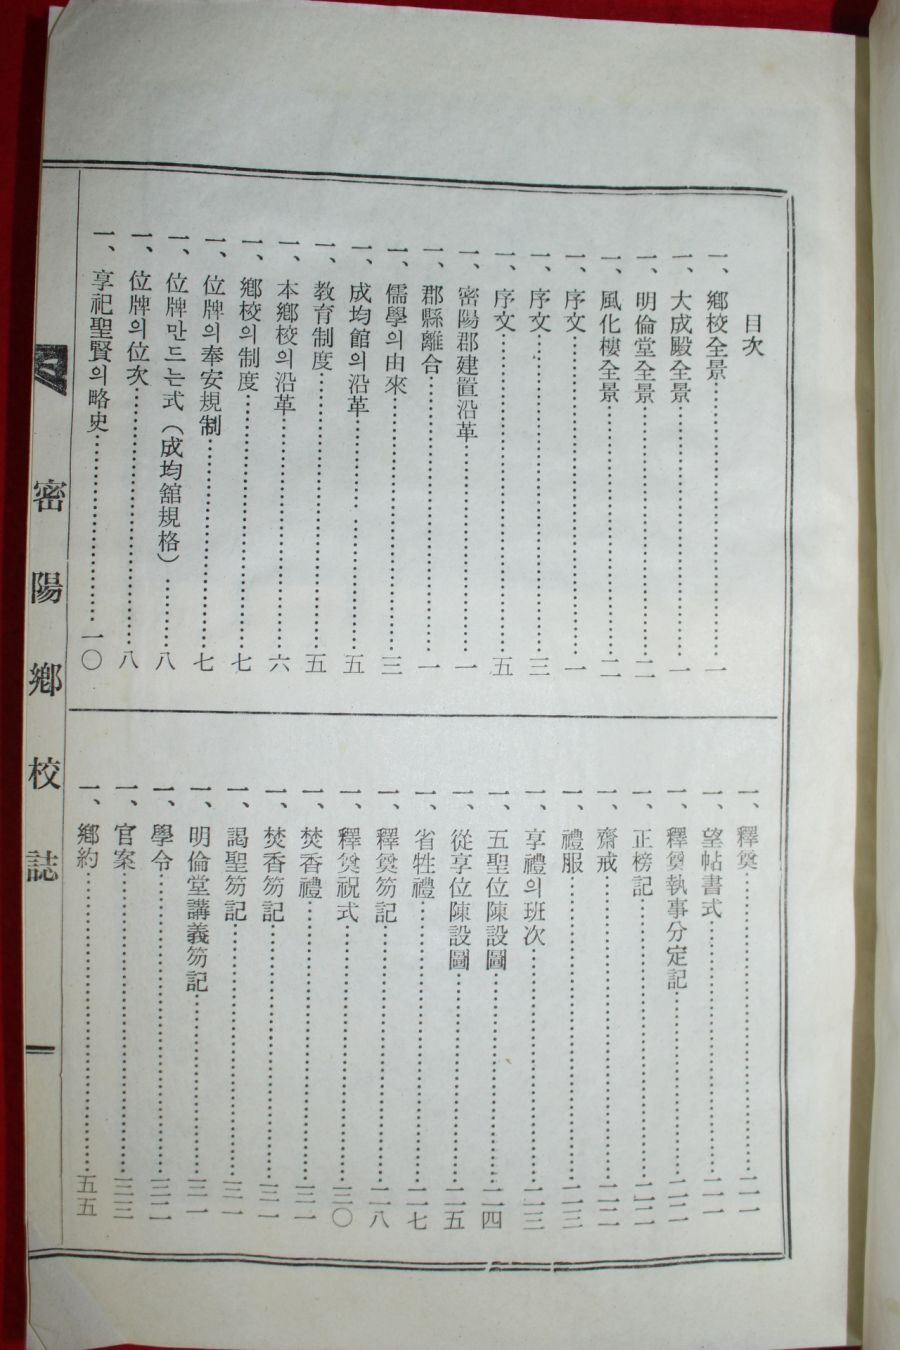 目次
一、鄕校全景……一
一、大成殿全景……一
一、明倫堂全景……二
一、風化樓全景……二
一、序文……一
一、序文……三
一、序文……五
一、密陽郡建置沿革……一
一、郡縣離合……一
一、儒學의由來……三
一、成均館의沿革……五
一、教育制度……五
一、本鄕校의沿革……六
一、鄕校의制度……七
一、位牌의奉安規制……七
一、位牌만드는式(成均舘規格)……八
一、位牌의位次……八
一、享祀聖賢의略史……一〇
一、釋奠……二一
一、望帖書式……二一
一、釋奠執事分定記……二二
一、正榜記……二二
一、齋戒……二二
一、禮服……二三
一、享禮의班次……二三
一、五聖位陳設圖……二四
一、從享位陳設圖……二五
一、省牲禮……二七
一、釋奠笏記……二八
一、釋奠祝式……三〇
一、焚香禮……三一
一、焚香笏記……三一
一、謁聖笏記……三一
一、明倫堂講義笏記……三一
一、學令……三二
一、官案……三三
一、鄕約……五五
密陽鄕校誌
一